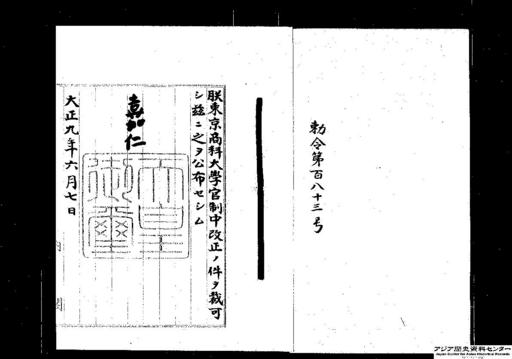 勅令第百八十三号
朕東京商科大學官制中改正ノ件ヲ裁可
シ茲ニ之ヲ公布セシム
嘉仁
天皇御璽
大正九年六月七日
アジア歴史資料センター
Japan Center for Asian Historical Records